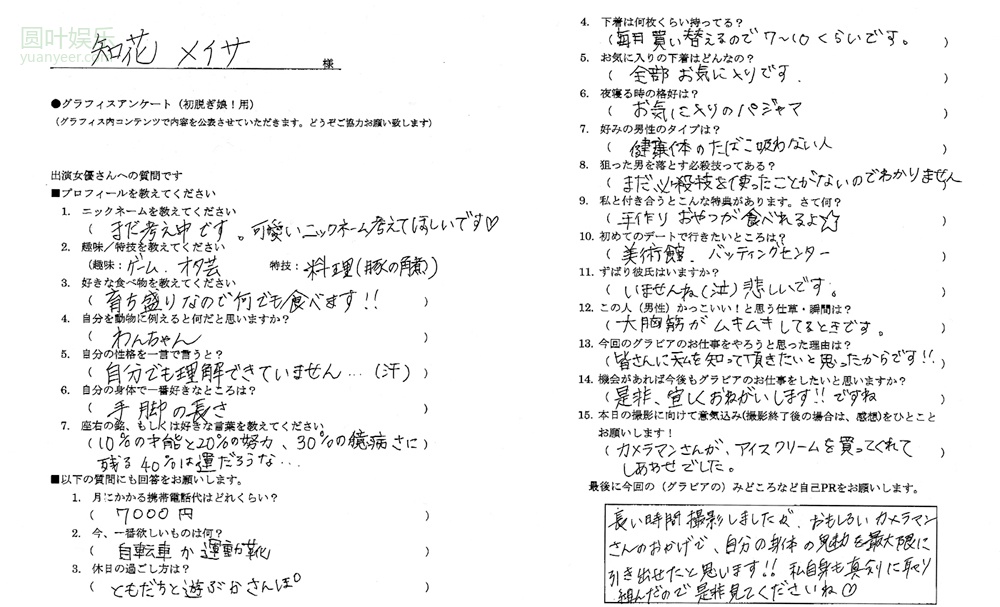 圆叶娱乐
yuanyeer.com
知花 メイサ 様
●グラフィスアンケート（初脱ぎ娘！用）
（グラフィス内コンテンツで内容を公表させていただきます。どうぞご協力お願い致します）
出演女優さんへの質問です
■プロフィールを教えてください
1. ニックネームを教えてください
（ まだ考え中です。可愛いニックネーム考えてほしいです♡
2. 趣味／特技を教えてください
（趣味：ゲーム．オタ芸 特技：料理（豚の角煮））
3. 好きな食べ物を教えてください
（ 育ち盛りなので何でも食べます!! ）
4. 自分を動物に例えると何だと思いますか？
（ わんちゃん ）
5. 自分の性格を一言で言うと？
（ 自分でも理解できていません…（汗） ）
6. 自分の身体で一番好きなところは？
（ 手脚の長さ ）
7. 座右の銘、もしくは好きな言葉を教えてください
（10%の才能と20%の努力、30%の臆病さに）
残る40%は運だろうな…
■以下の質問にも回答をお願いします。
1. 月にかかる携帯電話代はどれくらい？
（ 7000円 ）
2. 今、一番欲しいものは何？
（ 自転車か運動靴 ）
3. 休日の過ごし方は？
（ ともだちと遊ぶかさんぽ ）
4. 下着は何枚くらい持ってる？
（毎月買い替えるので7〜10くらいです。 ）
5. お気に入りの下着はどんなの？
（ 全部お気に入りです． ）
6. 夜寝る時の格好は？
（ お気に入りのパジャマ ）
7. 好みの男性のタイプは？
（ 健康体のたばこ吸わない人 ）
8. 狙った男を落とす必殺技ってある？
（ まだ必殺技を使ったことがないのでわかりません
9. 私と付き合うとこんな特典があります。さて何？
（ 手作りおやつが食べれるよ☆ ）
10. 初めてのデートで行きたいところは？
（ 美術館．バッティングセンター ）
11. ずばり彼氏はいますか？
（ いませんね（泣）悲しいです。 ）
12. この人（男性）かっこいい！と思う仕草・瞬間は？
（ 大胸筋がムキムキしてるときです。 ）
13. 今回のグラビアのお仕事をやろうと思った理由は？
（皆さんに私を知って頂きたいと思ったからです!!．）
14. 機会があれば今後もグラビアのお仕事をしたいと思いますか？
（是非、宜しくおねがいします!!ですね ）
15. 本日の撮影に向けて意気込み(撮影終了後の場合は、感想)をひとこと
お願いします！
（ カメラマンさんが、アイスクリームを買ってくれて
しあわせでした。 ）
最後に今回の（グラビアの）みどころなど自己PRをお願いします。
長い時間撮影しましたが、おもしろいカメラマン
さんのおかげで、自分の身体の魅力を最大限に
引き出せたと思います!!私自身も真剣に取り
組んだので是非見てくださいね♡